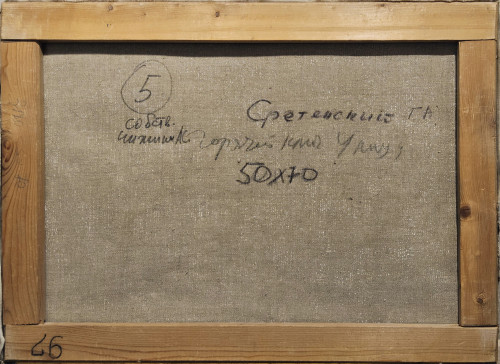 5
собств.
Сретенский ГА
Горячий ключ Улица
50х70
97